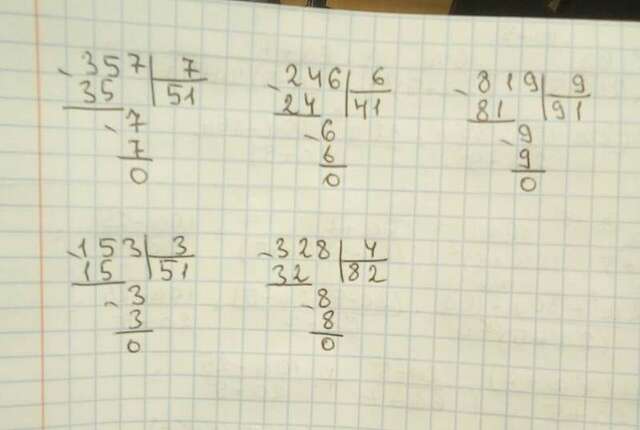 - 357 | 7
35 | 51
- 7
7
0
- 246 | 6
24 | 41
- 6
6
0
- 819 | 9
81 | 91
- 9
9
0
- 153 | 3
15 | 51
- 3
3
0
- 328 | 4
32 | 82
- 8
8
0